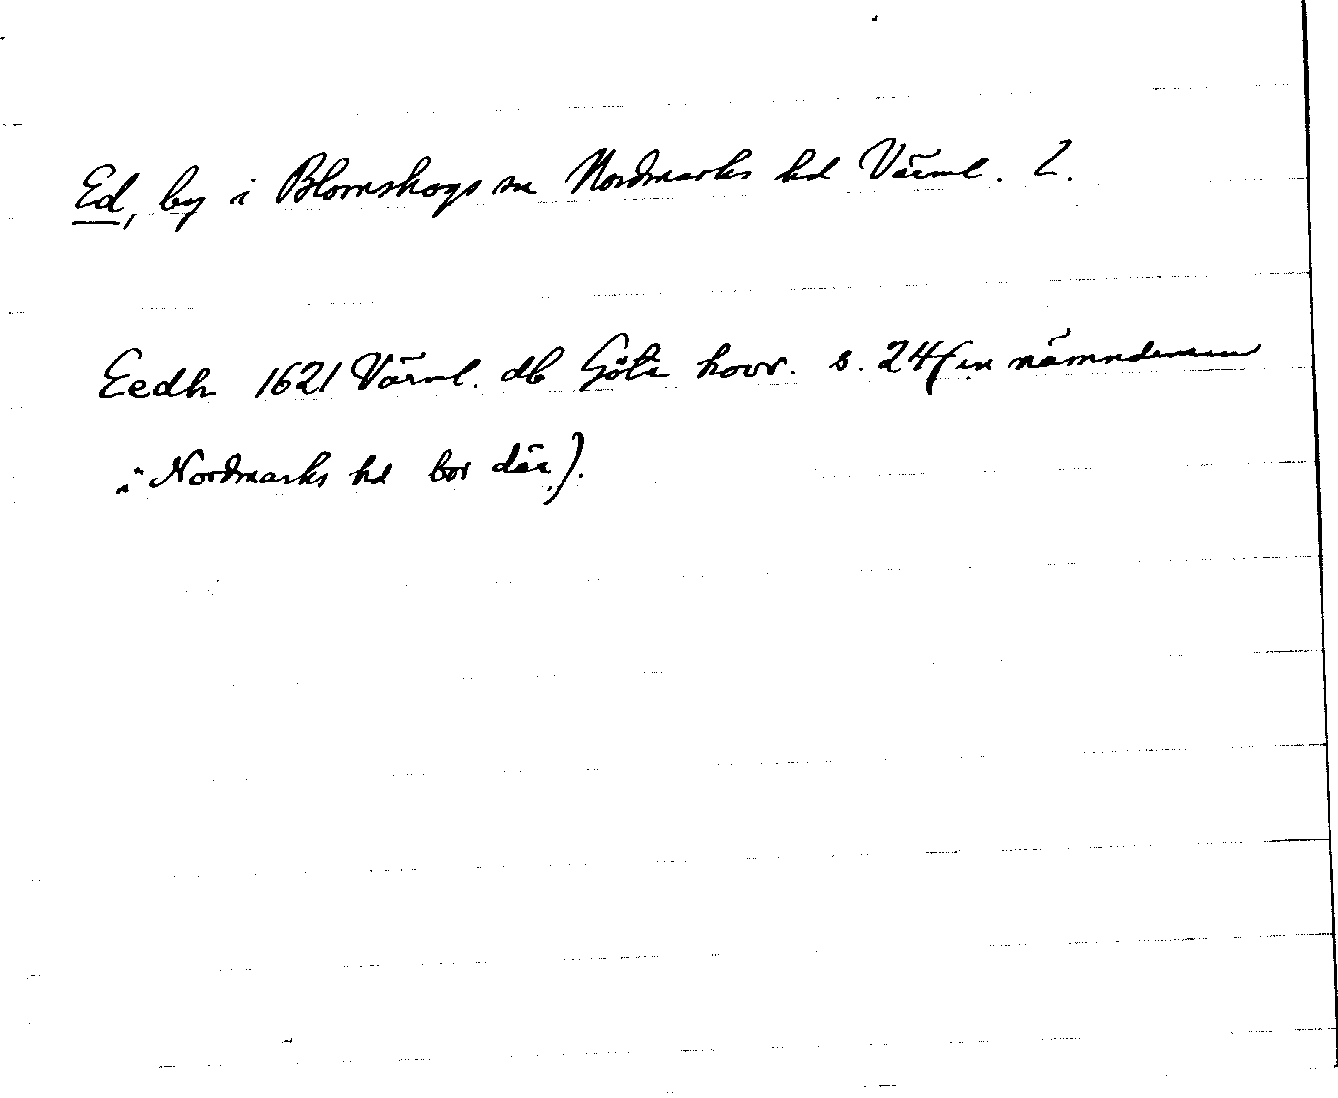 Ed, by i Blomskogs sn Nordmarks hd Värml. L.
Eedh 1621 Värml. db Göta hovr. s. 24 (en nämndeman
i Nordmarks hd bor där).